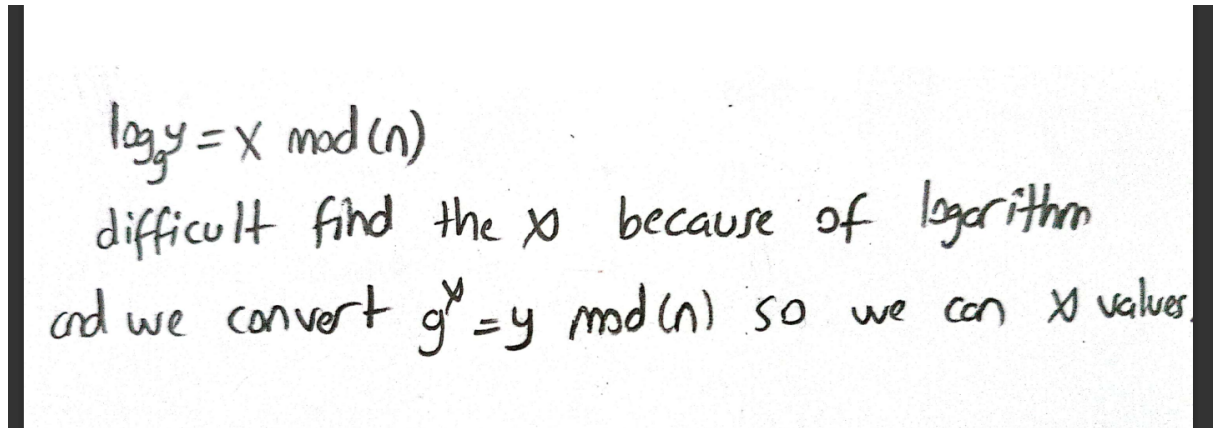 log_g y = x mod (n)
difficult find the x because of logarithm
and we convert g^x = y mod (n) so we can x values.